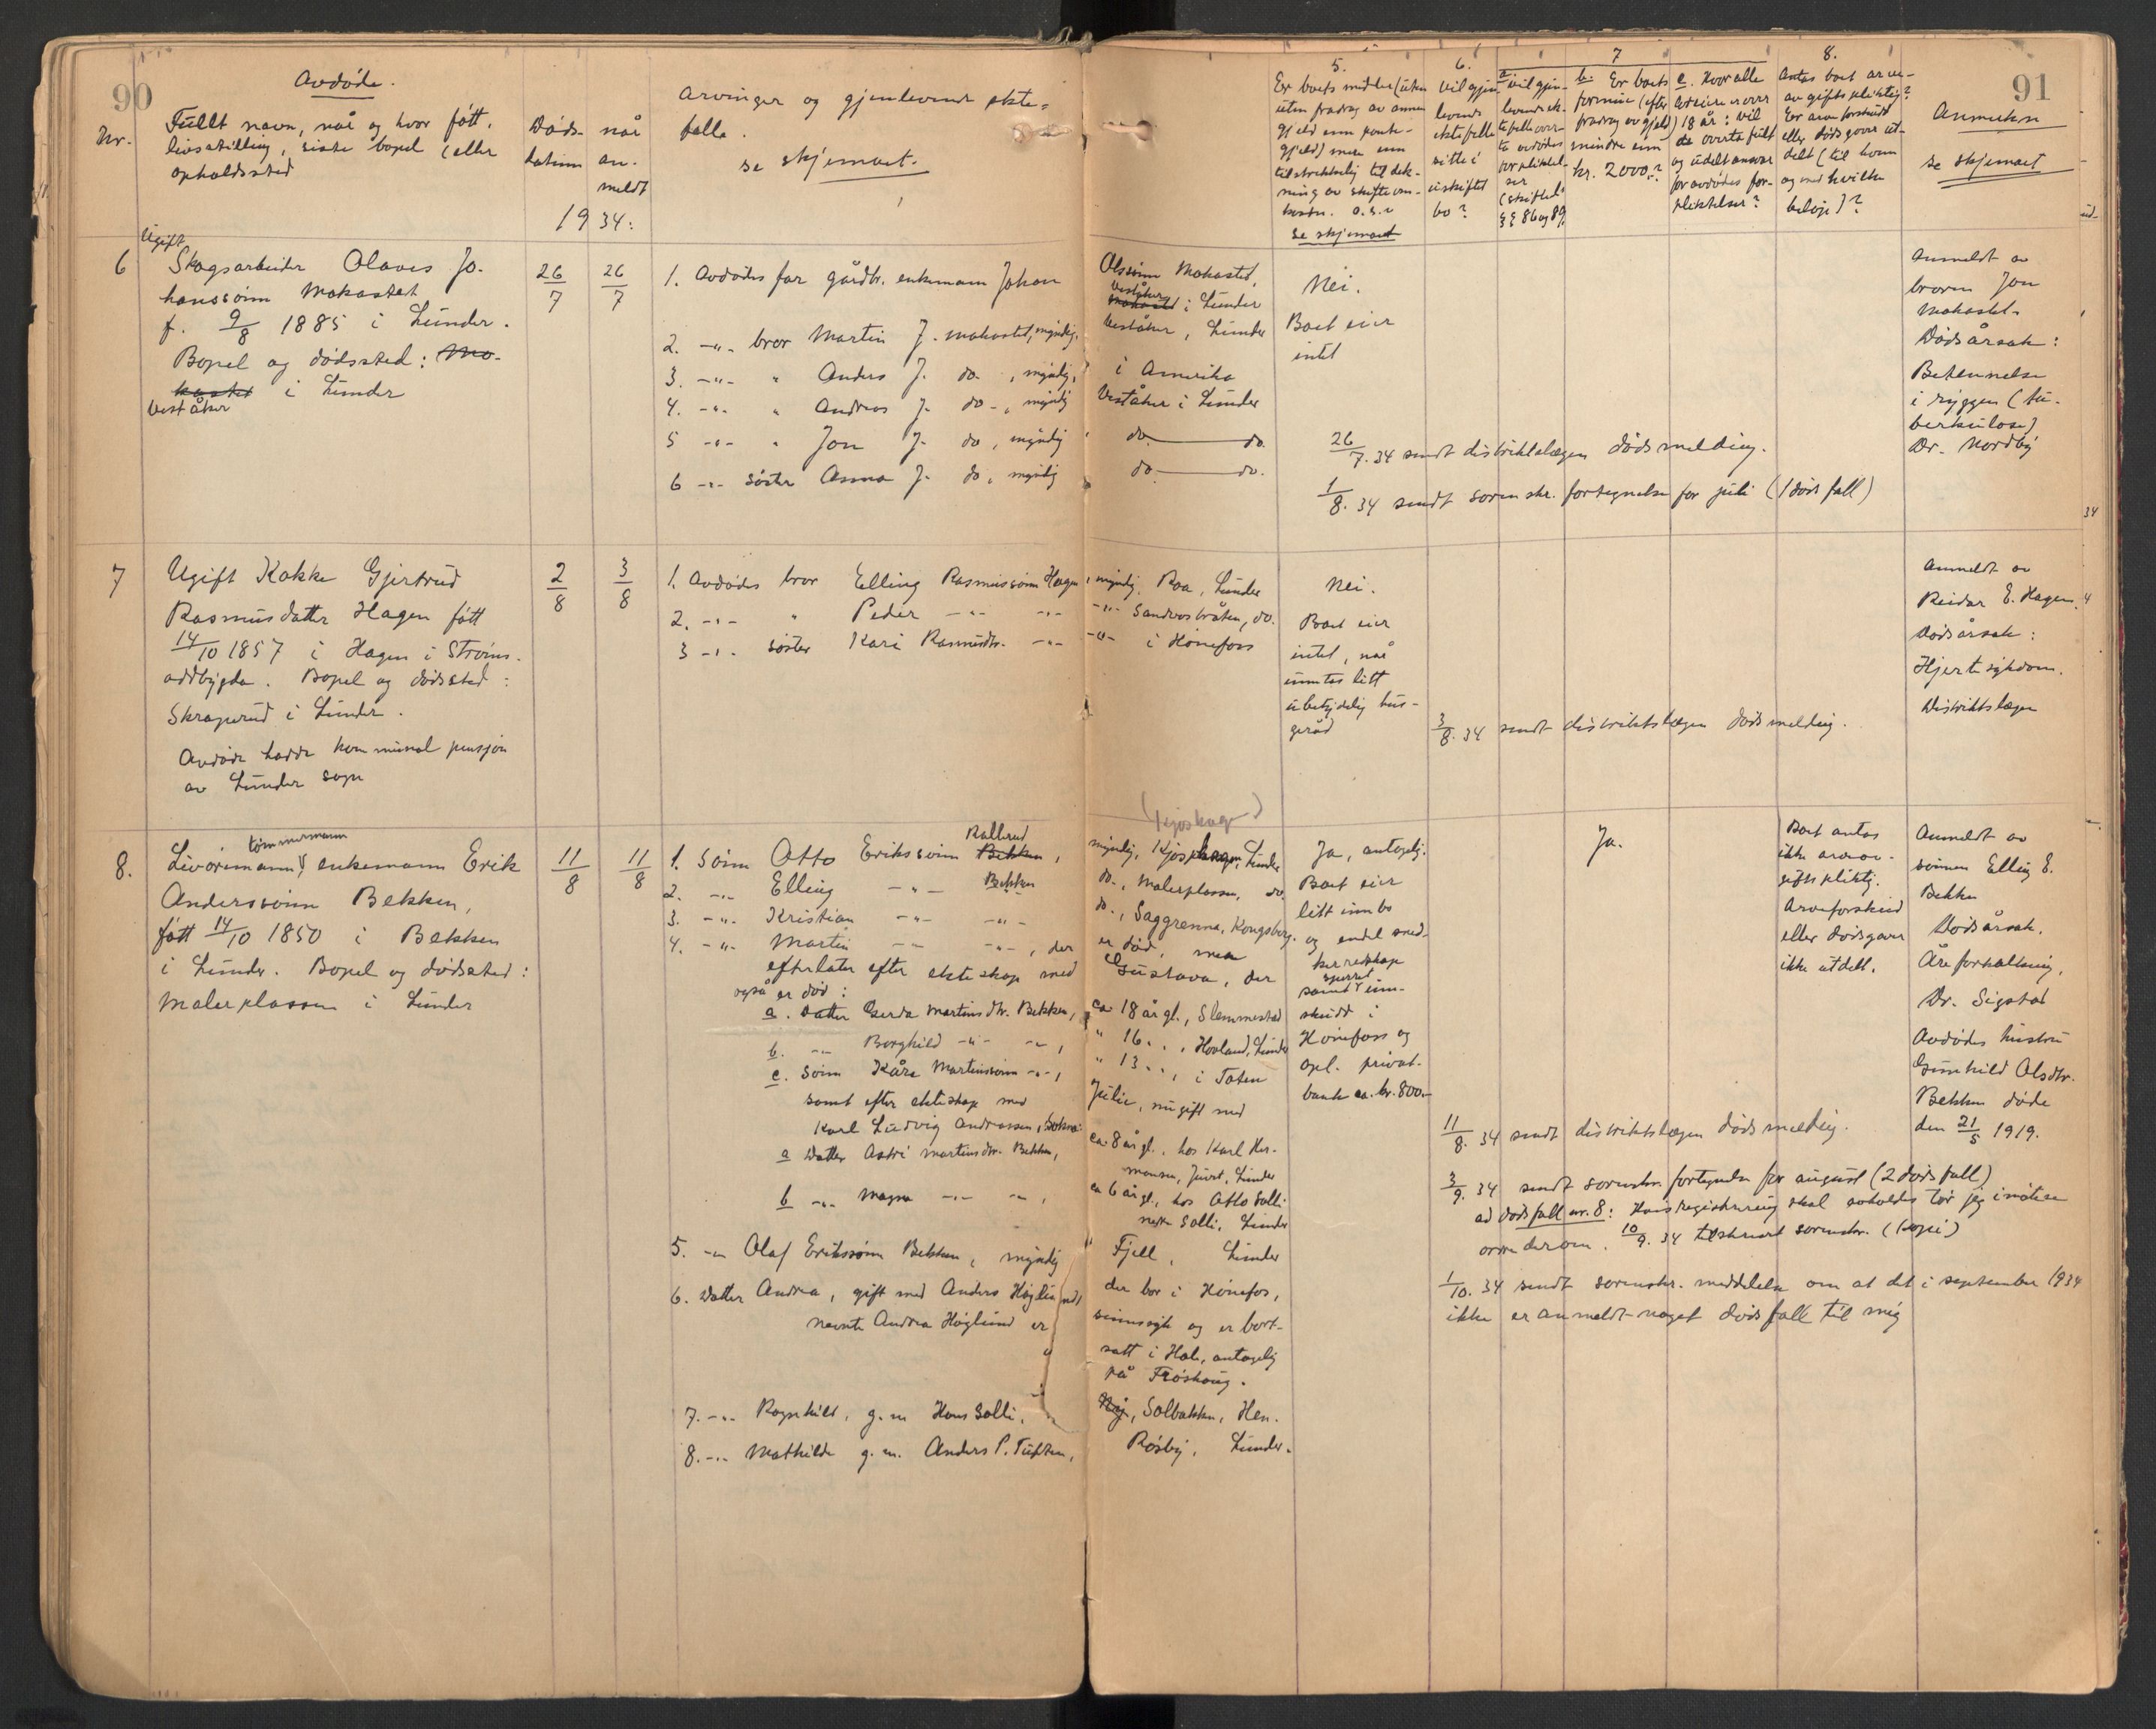 90
Avdøde.
Nr.
Fullt navn, når og hvor fött,
livsstilling, siste bopel (eller
opholdssted
Døds-
datum
når
an-
meldt
1934:
Arvinger og gjenlevende ekte-
felle.
se skjemaet.
5.
Er boets midler (uten
uten fradrag av annen
gjeld enn pante-
gjeld) mere enn
tilstrekkelig til dek-
ning av skifteom-
kostn. o.s.v
se skjemaet
6.
Vil gjen-
levende
ektefelle
sitte i
uskiftet
bo?
7
a vil gjen-
levende ek-
tefelle over-
ta avdødes
forpliktel-
ser
(skiftel.
§§ 86 og 89
b. Er boets
formue (efter
fradrag av gjeld)
mindre enn
kr. 2000,-?
c. Hvor alle
arvinger er over
18 år: vil
de overta fullt
og udelt ansvar
for avdødes for-
pliktelser?
8.
Antas boet arve-
avgiftspliktig?
Er arveforskudd
eller dødsgaver ut-
delt (til hvem
og med hvilke
beløp)?
91
Anmerkn
se skjemaet
6
Ugift
Skogsarbeider Olaves Jo-
hanssønn Mokastet
f. 9/8 1885 i Lunder.
Bopel og dødssted: Mo-
kastet i Lunder
Veståker
26/7
26/7
1. Avdødes far gårdbr. enkemann Johan Olssønn Mokastet,
Veståker
Mokastet i Lunder
2. -"- bror Martin J. Mokastet, myndig, Veståker, Lunder
3. -"- " Anders J. do. , myndig, i Amerika
4. -"- " Andreas J. do-, myndig Veståker i Lunder
5 -"- " Jon J. do, myndig do. — do.
6 -"- søster Anna J. do, myndig do — do.
Nei.
Boet eier
intet
26/7. 34 sendt distriktslægen dødsmelding.
1/8. 34 sendt sorenskr. fortegnelse for juli (1 dødsfall)
Anmeldt av
broren Jon
Mokastet.
Dødsårsak:
Betennelse
i ryggen (tu-
berkulose)
Dr. Nordby
7
Ugift Kokke Gjertrud
Rasmusdatter Hagen fött
14/10 1857 i Hagen i Strøms-
oddbygda. Bopel og dødssted:
Skraperud i Lunder.
Avdøde hadde kommunal pensjon
av Lunder sogn
2/8
3/8
1. Avdødes bror Elling Rasmussønn Hagen, myndig, Roa, Lunder
2. -"- " Peder -"- -"- -"- Sandvasbråten, do.
3 -"- søster Kari Rasmusdtr. -"- -"- i Hønefoss
Nei.
Boet eier
intet, når
unntas litt
ubetydelig hus-
geråd
3/8. 34 sendt distriktslægen dødsmelding.
Anmeldt av
Reidar E. Hagen.
Dødsårsak:
Hjertesykdom.
Distriktslægen
8.
tømmermann
Livøremann, enkemann Erik
Anderssønn Bekken,
fött 14/10 1850 i Bekken
i Lunder. Bopel og dødssted:
Malerplassen i Lunder
11/8
11/8
(Kjøskog)
Rallerud
1. Sønn Otto Erikssønn Bekken, myndig, Kjøskogen, Lunder
2. -"- Elling -"- Bekken do., Malerplassen, do.
3. -"- Kristian -"- -"- do., Saggrenna, Kongsberg.
4. -"- Martin -"- -"-, der er død, men
efterlater efter ekteskap med Gustava, der
også er død:
a. Datter Gerda Martinsdtr. Bekken, ca 18 år gl., Slemmestad
b. -"- Borghild -"- -"-, " 16 " ", Hovland, Lunder
c. Sønn Kåre Martinssønn -"-, " 13 " ", i Toten
samt efter ekteskap med Julie, nu gift med
Karl Ludvig Andreassen, Sokna:
a Datter Astri Martinsdtr. Bekken, ca 8 år gl., hos Karl Her-
mansen, Juvet, Lunder
b -"- Magna -"- -"-, ca 6 år gl., hos Otto Solli
nedre Solli, Lunder
5. -"- Olaf Erikssønn Bekken, myndig Fjell, Lunder
6. Datter Andrea, gift med Anders Høglund, der bor i Hønefos,
nevnte Andrea Høglund er sinnssyk og er bort-
satt i Hole, antagelig
på Frøshaug.
7. -"- Ragnhild, g. m Hans Solli, Solbakken, Hen.
8. -"- Mathilde g. m. Anders P. Tuften, Røsby, Lunder.
Ja, antagelig.
Boet eier
litt innbo
og endel sned-
kerredskap
samt sparret inn-
skudd i
Hønefoss og
opl. privat-
bank ca. kr. 800.-
Ja.
Boet antas
ikke arveav-
giftspliktig.
Arveforskudd
eller dødsgaver
ikke utdelt.
Anmeldt av
sønnen Elling E.
Bekken
Dødsårsak.
Åreforkalkning,
Dr. Sigstad
Avdødes hustru
Gunhild Olsdtr.
Bekken døde
den 21/5 1919.
11/8. 34 sendt distriktslægen dødsmelding.
3/9. 34 sendt sorenskr. fortegnelse for august (2 dødsfall)
ad dødsfall nr. 8: Hvis registrering skal avholdes tør jeg imøtese
ordre derom. 10/9. 34 tilskrevet sorenskr. (kopi)
1/10. 34 sendt sorenskr. meddelelse om at det i september 1934
ikke er anmeldt noget dødsfall til mig